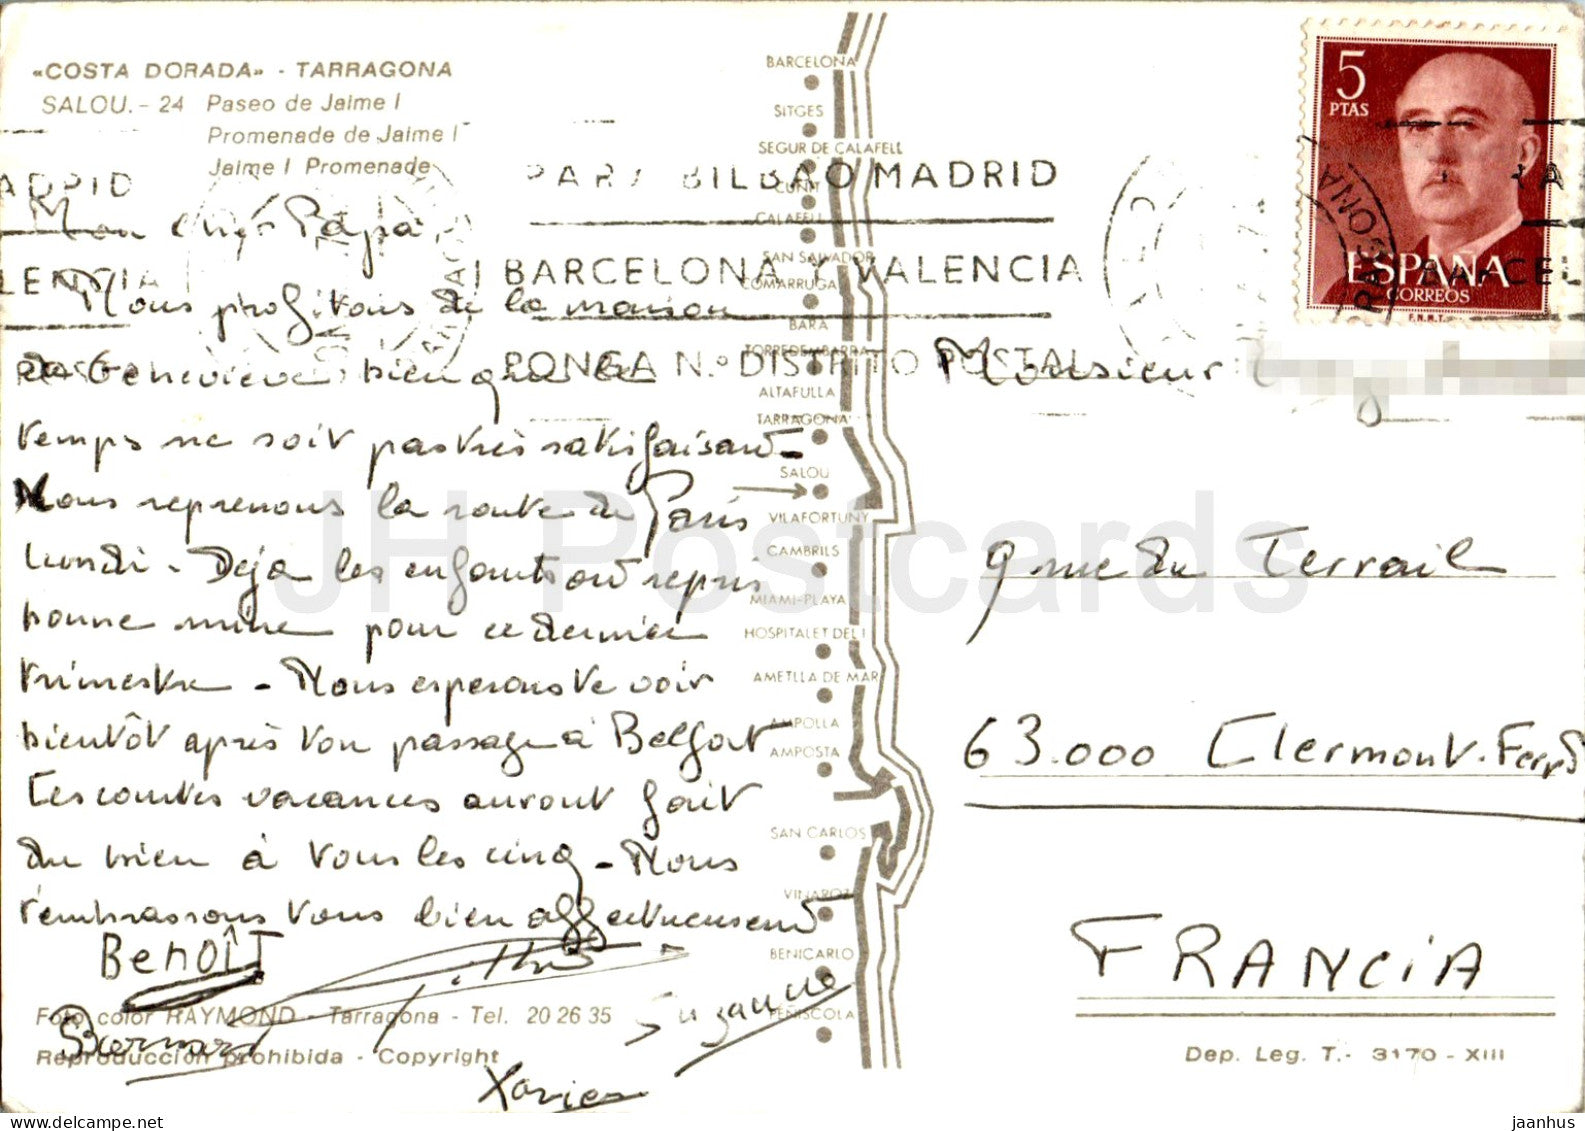 «COSTA DORADA» - TARRAGONA
SALOU.- 24 Paseo de Jaime I
Promenade de Jaime I
Jaime I Promenade
Mon cher Papa,
Nous profitons de la maison
de Geneviève bien que le
temps ne soit pas très satisfaisant -
Nous reprenons la route de Paris
lundi - Déjà les enfants ont repris
bonne mine pour ce dernier
trimestre - Nous esperons te voir
bientôt après ton passage à Belfort
Ces courtes vacances auront fait
du bien à tous les cinq - Nous
t'embrassons tous bien affectueusement
Benoît
Bernard
Suzanne
Xavier
Foto color RAYMOND - Tarragona - Tel. 20 26 35
Reproducción prohibida - Copyright
BARCELONA
SITGES
SEGUR DE CALAFELL
CUNIT
CALAFELL
SAN SALVADOR
COMARRUGA
BARA
TORREDEMBARRA
ALTAFULLA
TARRAGONA
SALOU
VILAFORTUNY
CAMBRILS
MIAMI-PLAYA
HOSPITALET DEL I
AMETLLA DE MAR
AMPOLLA
AMPOSTA
SAN CARLOS
VINAROZ
BENICARLO
PEÑISCOLA
PARA BILBAO MADRID
BARCELONA Y VALENCIA
PONGA N.º DISTRITO POSTAL
5
PTAS
ESPAÑA
CORREOS
F.N.M.T.
RAGONA
BARCEL
Monsieur
9 rue du Terrail
63.000 Clermont-Ferrd
FRANCIA
Dep. Leg. T.- 3170 - XIII
JH Postcards
delcampe.net
jaanhus